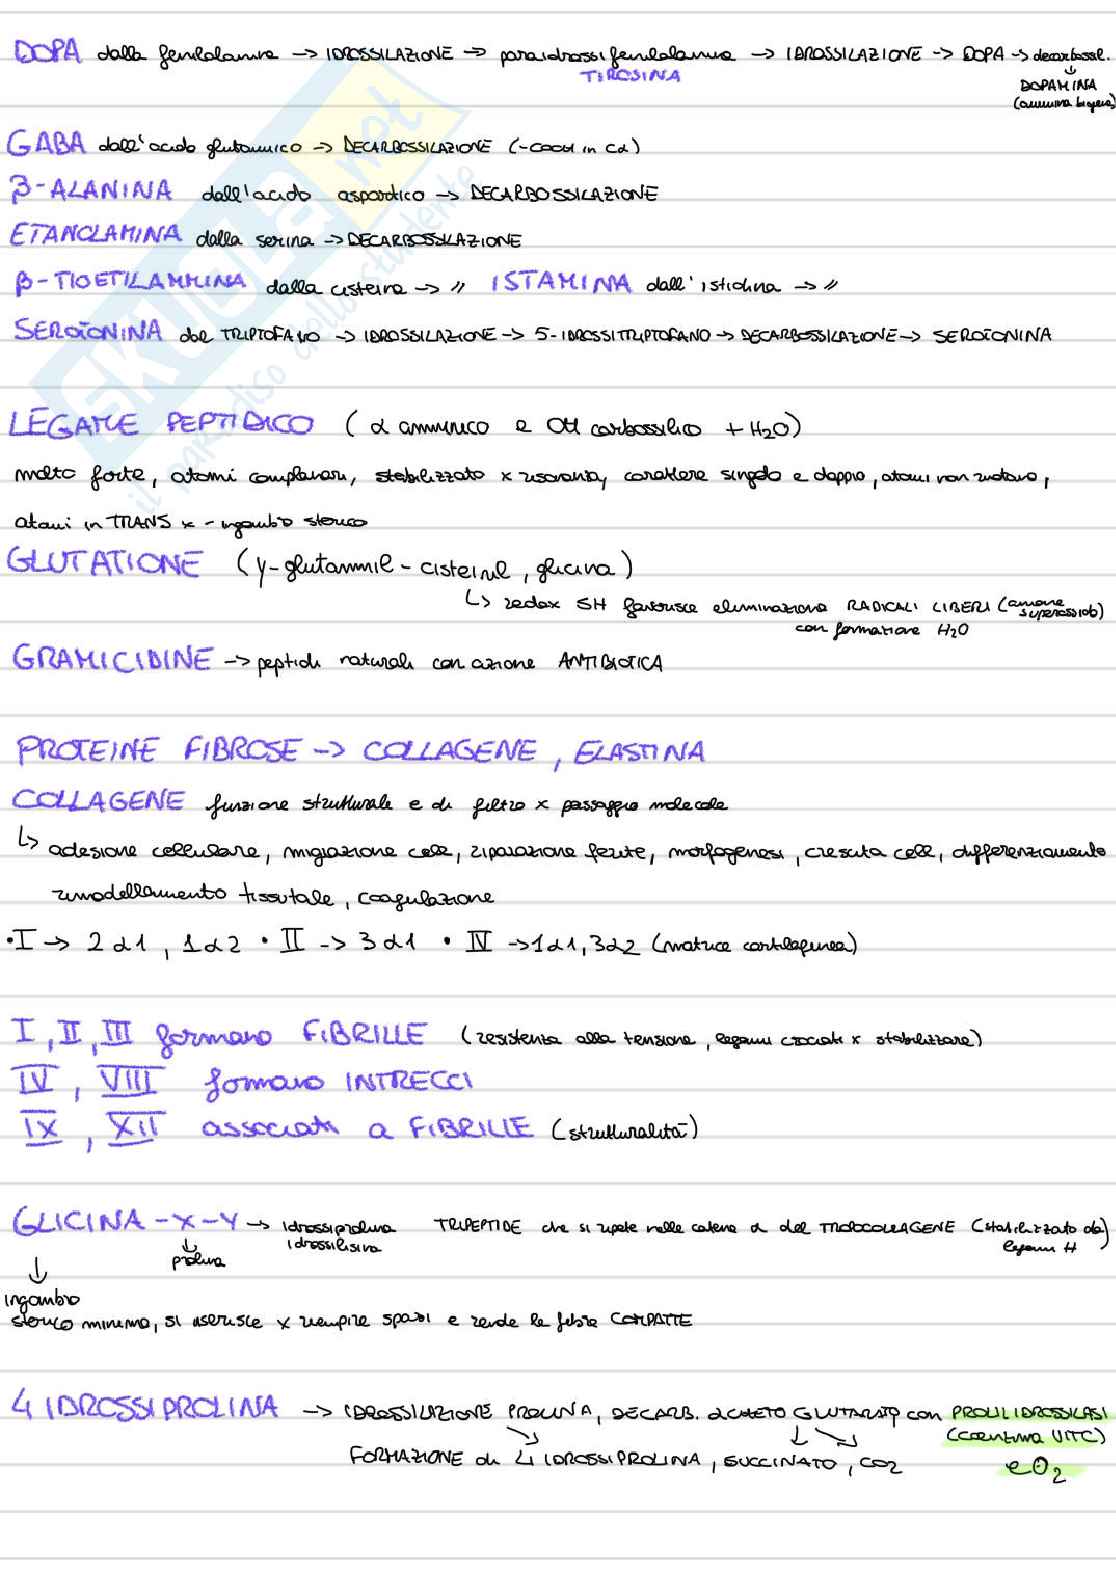 DOPA dalla fenilalanina → IDROSSILAZIONE → paraidrossifenilalanina → IDROSSILAZIONE → DOPA → decarbossil.
TIROSINA
↓
DOPAMINA
(ammina biogena)
GABA dall'acido glutammico → DECARBOSSILAZIONE (-COOH in Cα)
β-ALANINA dall'acido aspartico → DECARBOSSILAZIONE
ETANOLAMINA dalla serina → DECARBOSSILAZIONE
β-TIOETILAMMINA dalla cisteina → // ISTAMINA dall'istidina → //
SEROTONINA dal TRIPTOFANO → IDROSSILAZIONE → 5-IDROSSITRIPTOFANO → DECARBOSSILAZIONE → SEROTONINA
LEGAME PEPTIDICO (α amminico e OH carbossilico + H2O)
molto forte, atomi complanari, stabilizzato x risonanza, carattere singolo e doppio, atomi non ruotano,
atomi in TRANS x - ingombro sterico
GLUTATIONE (γ-glutammil-cisteinil, glicina)
↳ redox SH favorisce eliminazione RADICALI LIBERI (anione superossido)
con formazione H2O
GRAMICIDINE → peptidi naturali con azione ANTIBIOTICA
PROTEINE FIBROSE → COLLAGENE, ELASTINA
COLLAGENE funzione strutturale e di filtro x passaggio molecole
↳ adesione cellulare, migrazione cell, riparazione ferite, morfogenesi, crescita cell, differenziamento
rimodellamento tissutale, coagulazione
•I → 2α1, 1α2 •II → 3α1 •IV → 1α1, 3α2 (matrice cartilaginea)
I, II, III formano FIBRILLE (resistenza alla tensione, legami crociati x stabilizzare)
IV, VIII formano INTRECCI
IX, XII associati a FIBRILLE (strutturalità)
GLICINA-X-Y → idrossiprolina TRIPEPTIDE che si ripete nelle catene α del TROPOCOLLAGENE (stabilizzato da)
↓ idrossilisina legami H
↓ prolina
ingombro
sterico minimo, si inserisce x riempire spazi e rende le fibre COMPATTE
4 IDROSSIPROLINA → IDROSSILAZIONE PROLINA, DECARB. αCHETO GLUTARATO con PROLIL IDROSSILASI
(COENZIMA VIT C)
FORMAZIONE di 4 IDROSSIPROLINA, SUCCINATO, CO2 e O2
SKUOLA.net
il paradiso dello studente